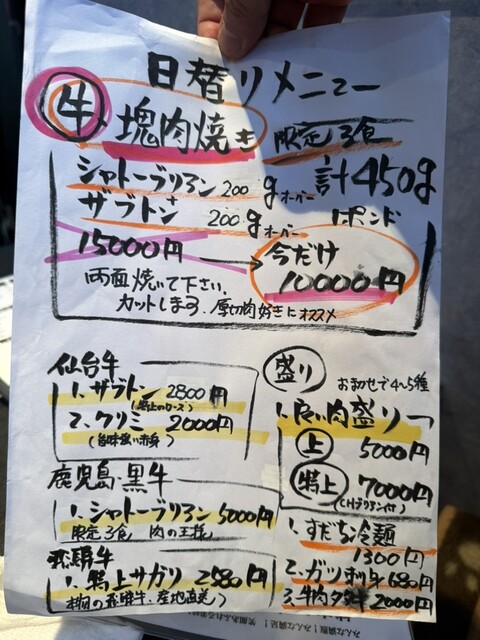 日替りメニュー
牛 塊肉焼き 限定3食
シャトーブリアン 200gオーバー 計450g
ザブトン 200gオーバー 1ポンド
15000円 → 今だけ 10000円
両面焼いて下さい。
カットします。厚切肉好きにオススメ
仙台牛
1.ザブトン 2800円
2.クリミ 2000円
(旨味強い赤身)
鹿児島・黒牛
1.シャトーブリアン 5000円
限定3食 肉の王様
飛騨牛
1.特上サガリ 2580円
本物の飛騨牛・産地直送
盛り おまかせで4〜5種
1.良い肉盛り
上 5000円
特上 7000円
1.すだち冷麺
1300円
2.ガツ刺し 680円
2000円
みんな満腹!みんな満足! 笑顔あふれる